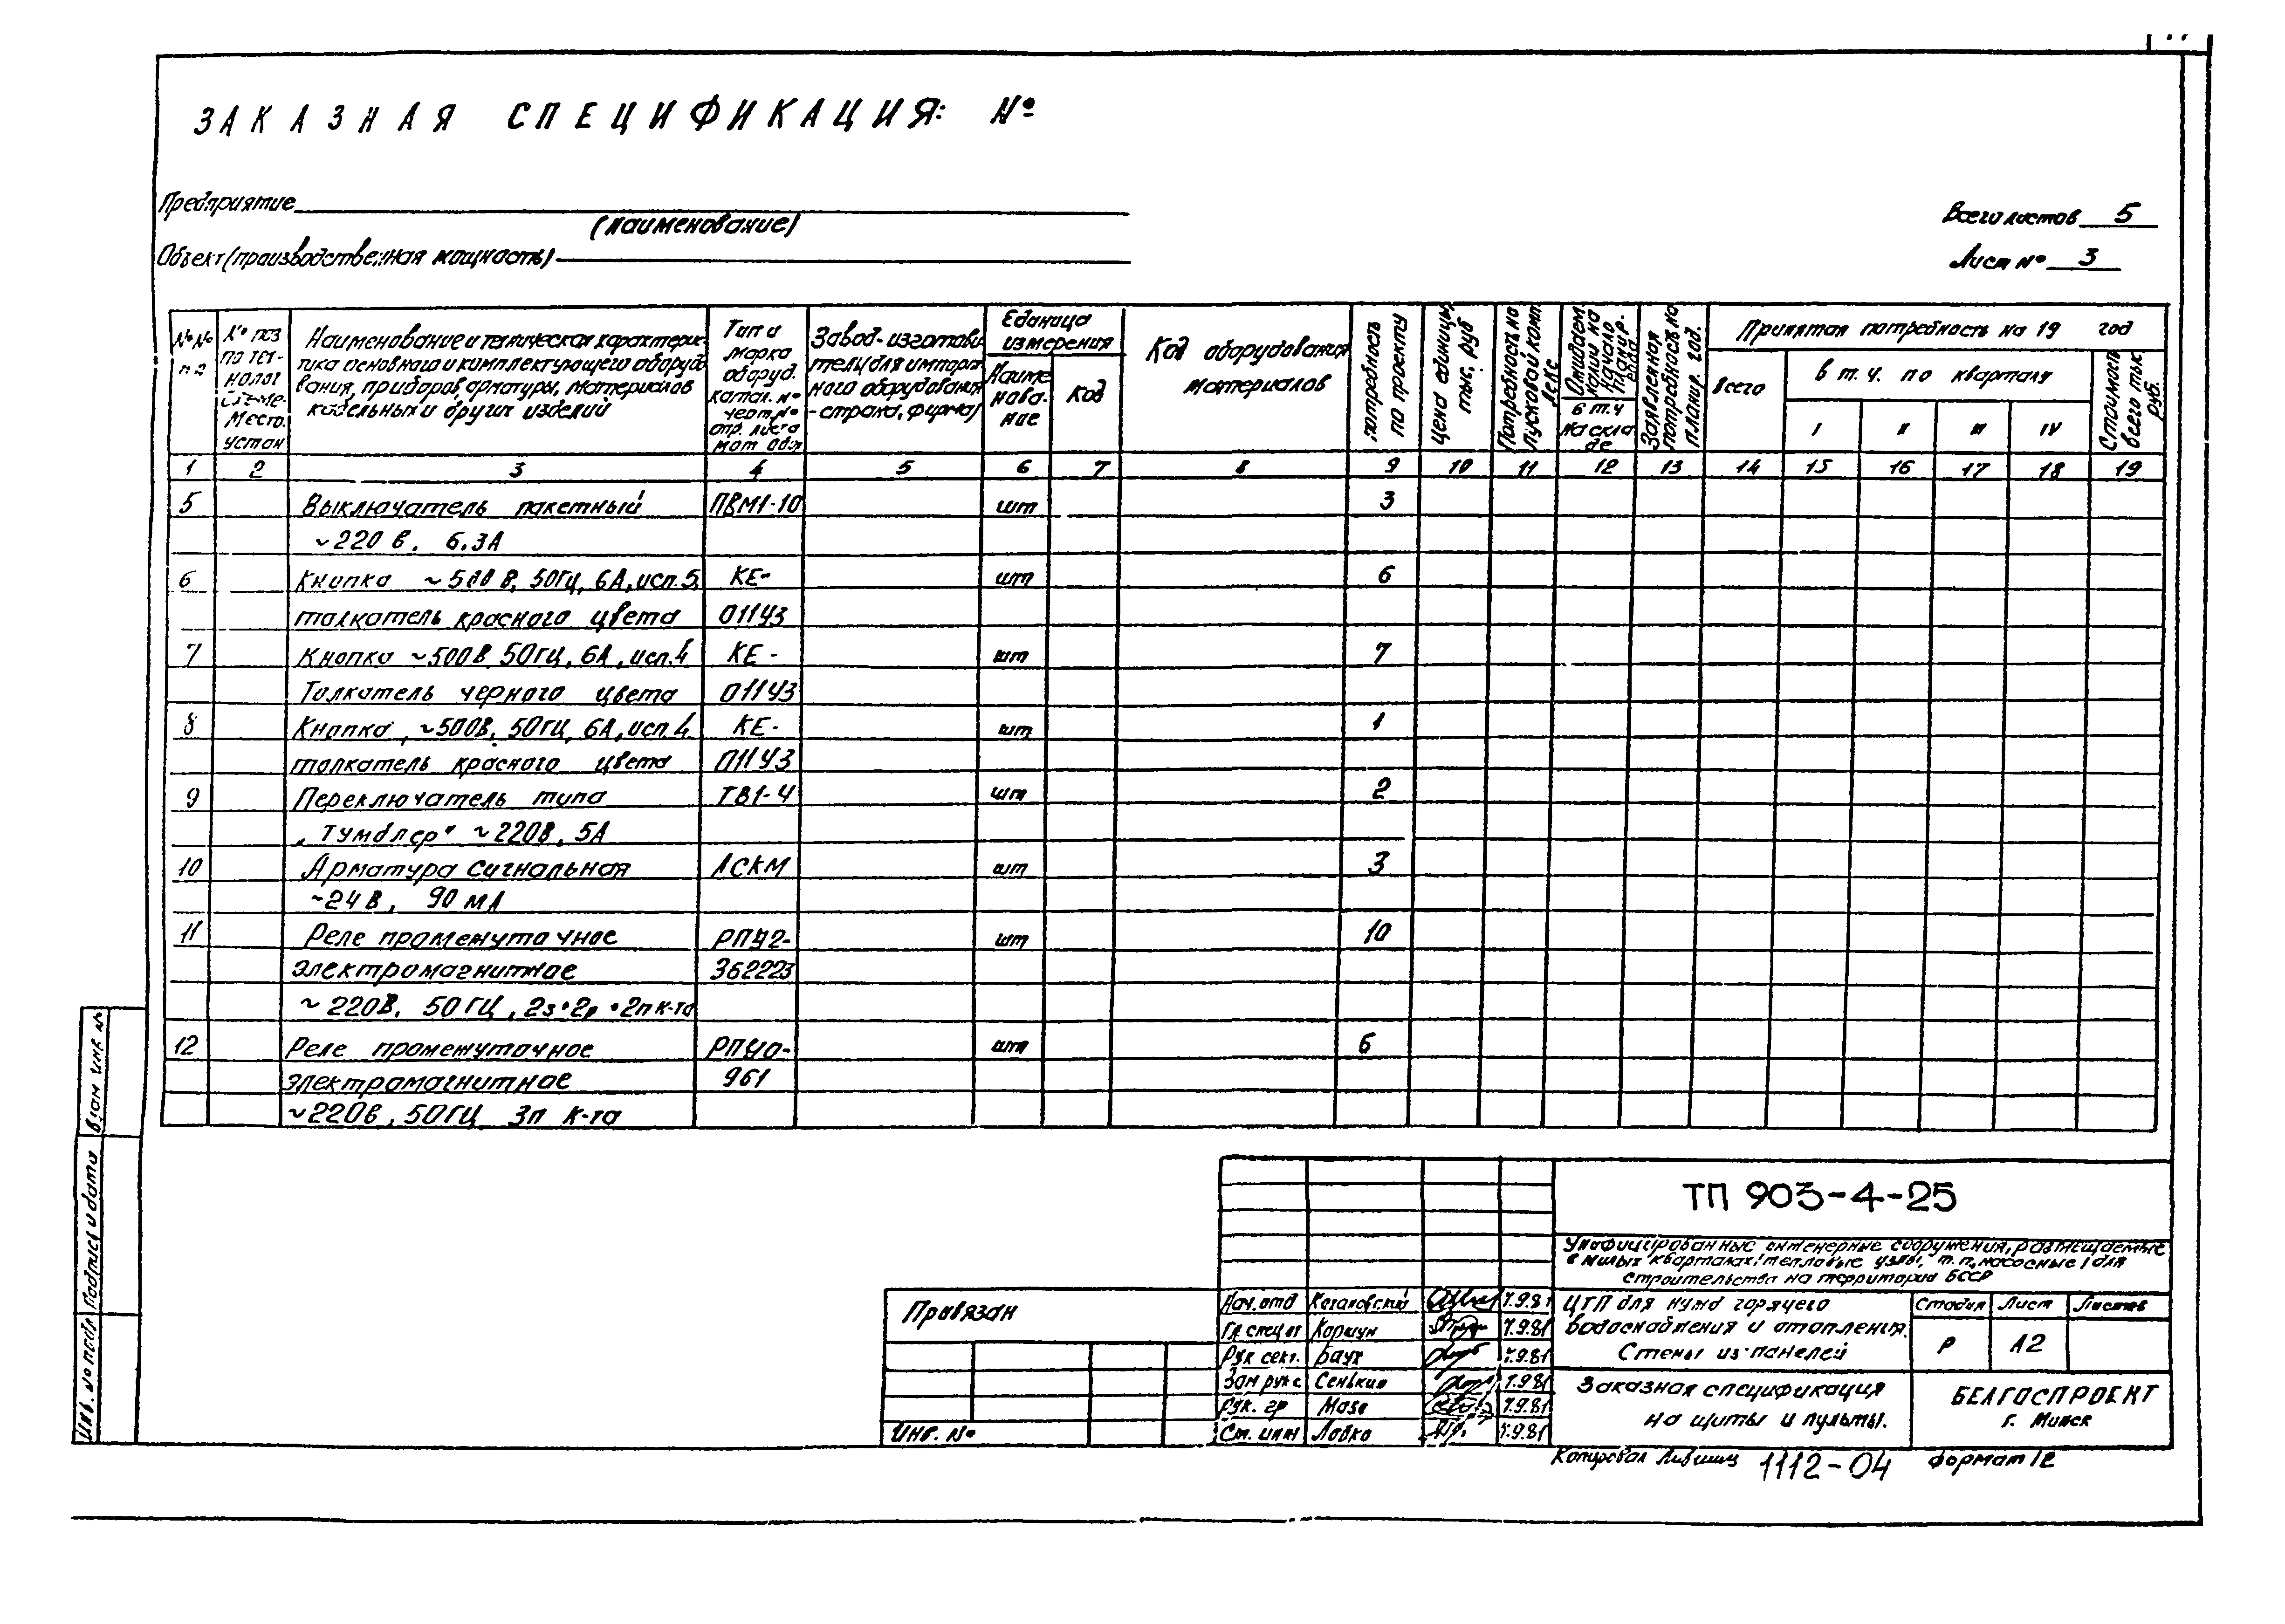 ЗАКАЗНАЯ СПЕЦИФИКАЦИЯ: №
Предприятие
(наименование)
Объект (производственная мощность)
Всего листов 5
Лист № 3
№№ п п
№ поз по тех-нолог схеме. Место устан
Наименование и техническая характерис-
тика основного и комплектующего оборудо
вания, приборов, арматуры, материалов
кабельных и других изделий
Тип и
марка
оборуд.
катал. №
черт. №
опр. листа
мат обор
Завод-изготови
тель (для импорт
ного оборудования
-страна, фирма)
Единица
измерения
Наиме
нова-
ние
Код
Код оборудования
материалов
потребность
по проекту
Цена единицы
тыс. руб
Потребность на
пусковой комп
лекс
Ожидаем.
налич на
начало
планир.
года
в т.ч
на скла
де
Заявленная
потребность на
планир. год.
Принятая потребность на 19 год
всего
в т. ч. по кварталу
I II III IV
Стоимость
всего тыс.
руб.
1 2 3 4 5 6 7 8 9 10 11 12 13 14 15 16 17 18 19
5 Выключатель пакетный ПВМ1-10 шт 3
~220 в, 6.3А
6 Кнопка ~500 В, 50Гц, 6А, исп. 5 КЕ- шт 6
толкатель красного цвета 011У3
7 Кнопка ~500В 50Гц, 6А, исп. 4 КЕ- шт 7
Толкатель черного цвета 011У3
8 Кнопка, ~500В, 50Гц, 6А, исп. 4 КЕ- шт 1
толкатель красного цвета 011У3
9 Переключатель типа ТВ1-4 шт 2
„Тумблер" ~220В, 5А
10 Арматура сигнальная АСКМ шт 3
~24В, 90 мА
11 Реле промежуточное РПУ2- шт 10
электромагнитное 362223
~220В, 50 Гц, 2з+2р+2п к-та
12 Реле промежуточное РПУ0- шт 6
электромагнитное 961
~220в, 50Гц 3п к-та
Взам инв. №
Подпись и дата
Инв. № подл
Привязан
Инв. №
Нач. отд Казановский 7.9.81
Гл спец от Коршун 7.9.81
Рук сект. Баух 7.9.81
Зам рук с Сенькин 7.9.81
Рук. гр Мазо 7.9.81
Ст. инж Лобко 7.9.81
ТП 903-4-25
Унифицированные инженерные сооружения, размещаемые
в жилых кварталах (тепловые узлы, т.п., насосные) для
строительства на территории БССР
ЦТП для нужд горячего
водоснабжения и отопления.
Стены из панелей
Стадия Лист Листов
Р А2
Заказная спецификация
на щиты и пульты.
БЕЛГОСПРОЕКТ
г. Минск
Копировал Лившиц 1112-04 формат 12